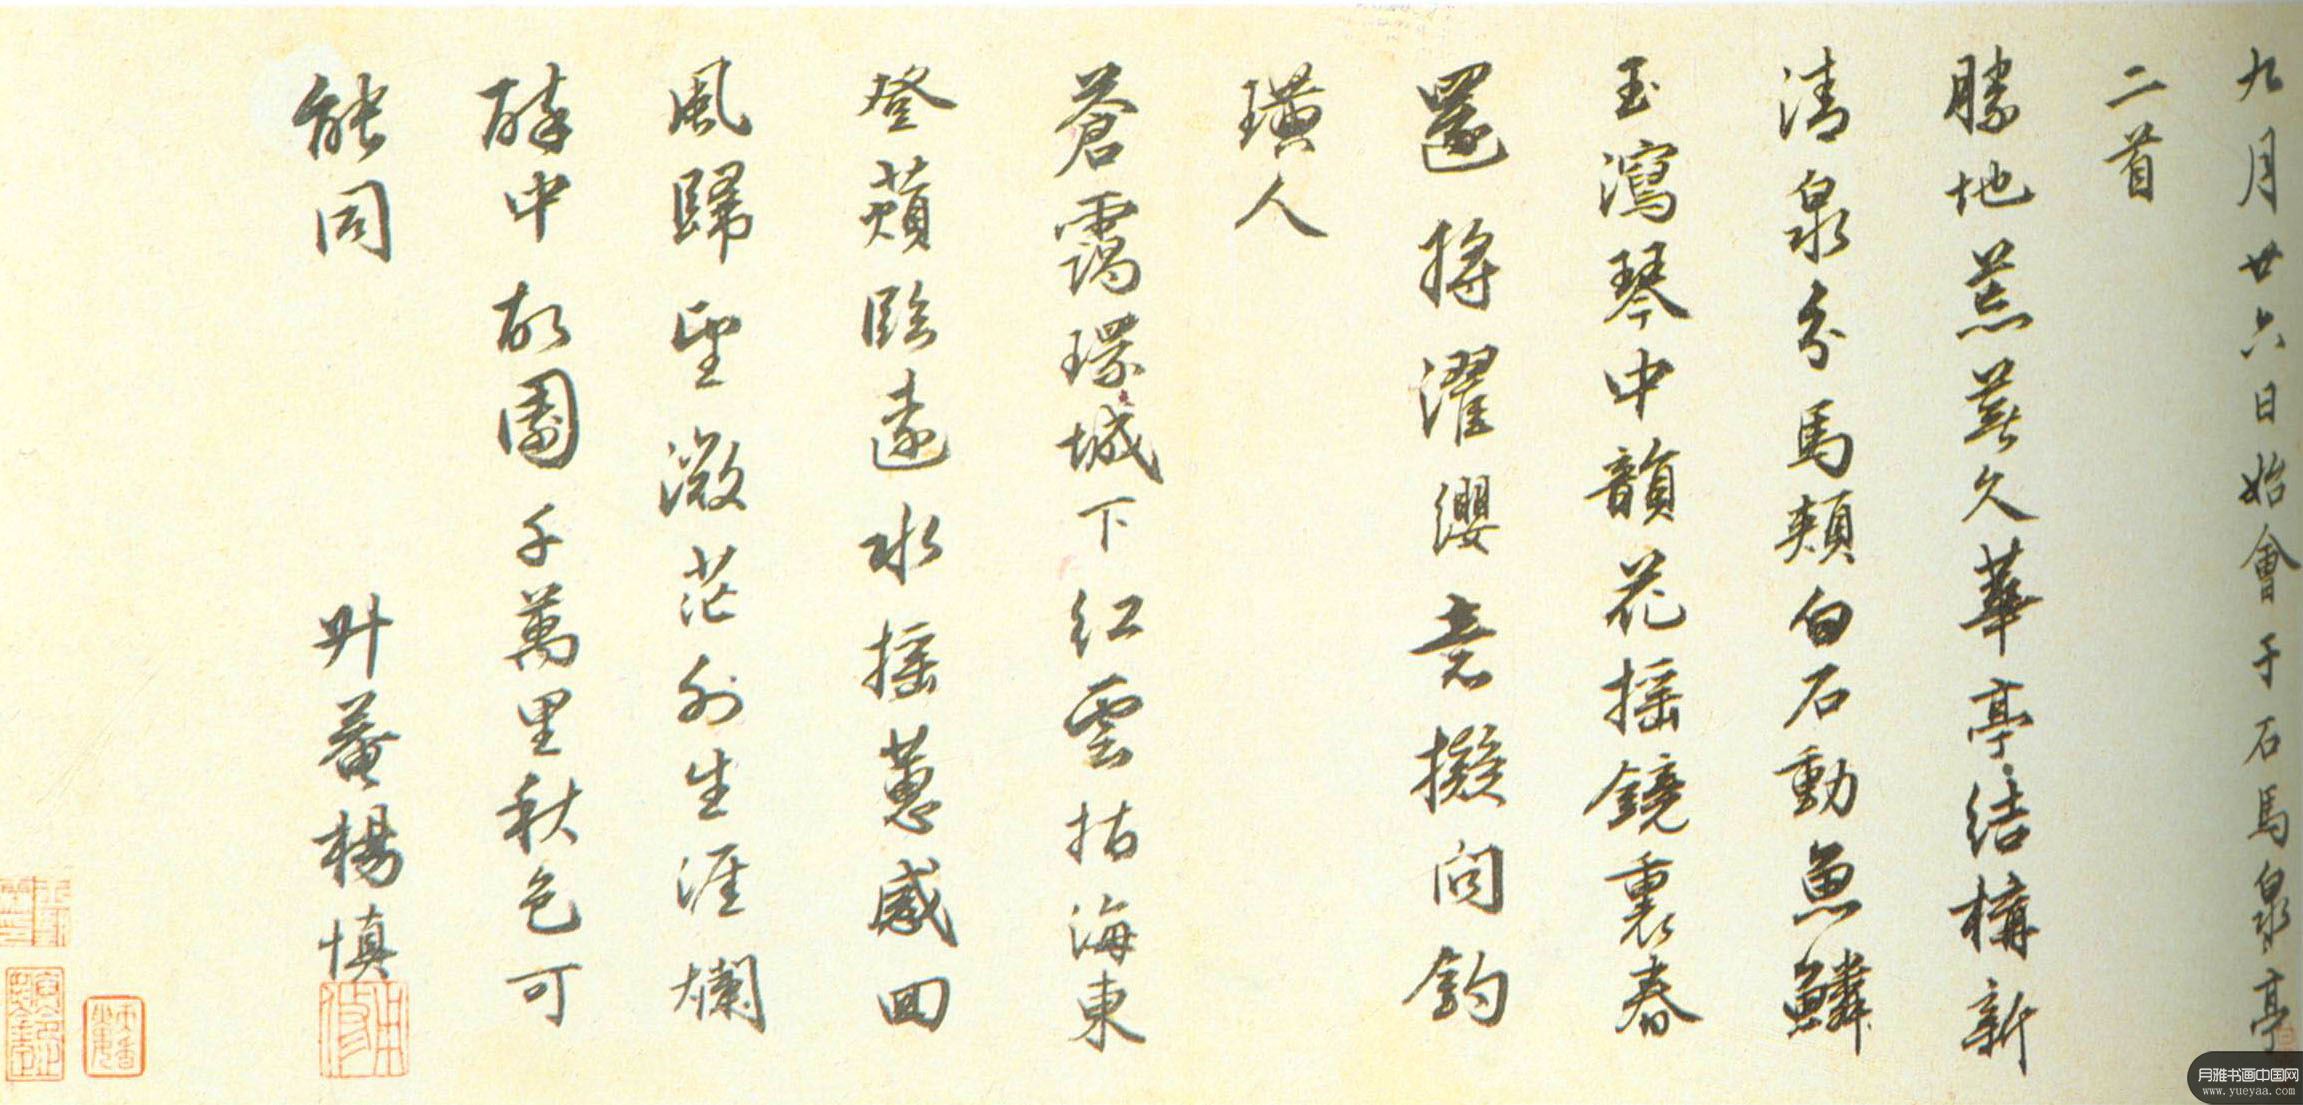 九月廿六日始會于石馬泉亭
二首
勝地荒蕪久華亭結構新
清泉分馬頰白石動魚鱗
玉瀉琴中韻花摇鏡裏春
還將濯纓意擬問釣
璜人
蒼靄環城下紅雲指海東
登蘋臨遠水摇蕙感回
風歸望微茫外生涯爛
醉中故園千萬里秋色可
能同
升菴楊慎
月雅书画中国网
www.yueyaa.com